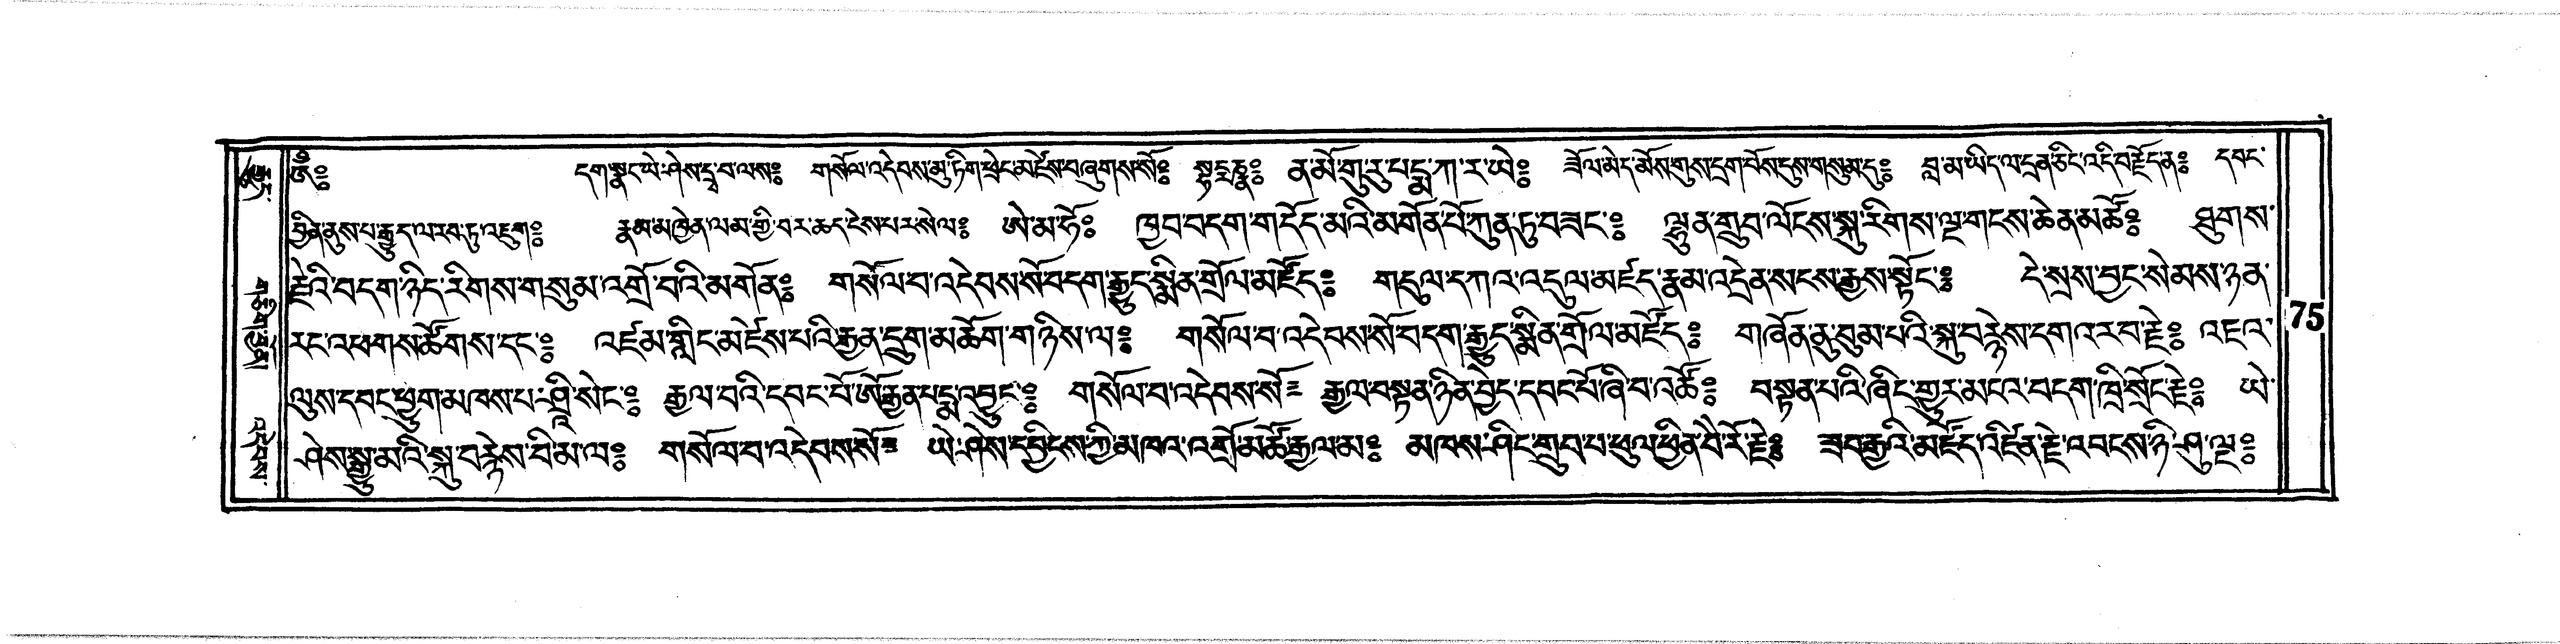 ༀ༔ དག་སྣང་ཡེ་ཤེས་དྲྭ་བ་ལས༔ གསོལ་འདེབས་མུ་ཏིག་ཕྲེང་མཛེས་བཞུགས་སོ༔ ན་མོ་གུ་རུ་པདྨ་ཀ་ར་ཡེ༔ ཟོལ་མེད་མོས་གུས་དྲག་པོས་དུས་གསུམ་དུ༔ བླ་མ་ཡིད་ལ་དྲན་ཅིང་འདི་བརྗོད་ན༔ དབང་
བྱིན་ནུས་པ་རྒྱུད་ལ་རབ་ཏུ་འཇུག༔ རྣམ་མཁྱེན་ལམ་གྱི་བར་ཆད་ངེས་པར་སེལ༔ ཨེ་མ་ཧོ༔ ཁྱབ་བདག་གདོད་མའི་མགོན་པོ་ཀུན་ཏུ་བཟང་༔ ལྷུན་གྲུབ་ལོངས་སྐུ་རིགས་ལྔ་གངས་ཆེན་མཚོ༔ ཐུགས་
རྗེའི་བདག་ཉིད་རིགས་གསུམ་འགྲོ་བའི་མགོན༔ གསོལ་བ་འདེབས་སོ་བདག་རྒྱུད་སྨིན་གྲོལ་མཛོད༔ གདུལ་དཀའ་འདུལ་མཛད་རྣམ་འདྲེན་སངས་རྒྱས་སྟོང་༔ དེ་སྲས་བྱང་སེམས་ཉན་
རང་འཕགས་ཚོགས་དང་༔ འཛམ་གླིང་མཛེས་པའི་རྒྱན་དྲུག་མཆོག་གཉིས་ལ༔ གསོལ་བ་འདེབས་སོ་བདག་རྒྱུད་སྨིན་གྲོལ་མཛོད༔ གཞོན་ནུ་བུམ་པའི་སྐུ་བརྙེས་དགའ་རབ་རྗེ༔ འཇའ་
ལུས་དབང་ཕྱུག་མཁས་པ་ཤྲཱི་སེང་༔ རྒྱལ་བའི་དབང་པོ་ཨོ་རྒྱན་པདྨ་འབྱུང་༔ གསོལ་བ་འདེབས་སོ༔ རྒྱལ་བསྟན་ཉིན་བྱེད་དབང་པོ་ཞི་བ་འཚོ༔ བསྟན་པའི་ཞིང་གྱུར་མངའ་བདག་ཁྲི་སྲོང་རྗེ༔ ཡེ་
ཤེས་སྒྱུ་མའི་སྐུ་བརྙེས་བི་མ་ལ༔ གསོལ་བ་འདེབས་སོ༔ ཡེ་ཤེས་དབྱིངས་ཀྱི་མཁའ་འགྲོ་མཚོ་རྒྱལ་མ༔ མཁས་ཤིང་གྲུབ་པ་ཕུལ་ཕྱིན་བཻ་རོ་རྗེ༔ ཟབ་རྒྱའི་མཛོད་འཛིན་རྗེ་འབངས་ཉི་ཤུ་ལྔ༔
75